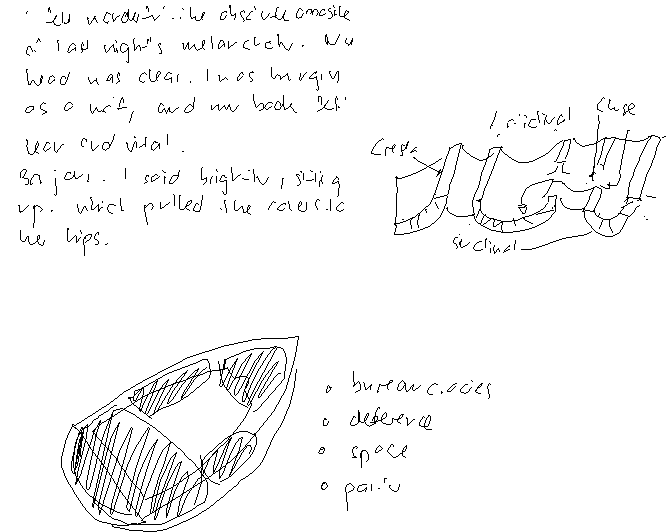 I felt wonderful. The absolute opposite
of last night's melancholy. My
head was clear. I was hungry
as a wolf, and my body felt
lean and vital.
Bonjour. I said brightly, sitting
up. which pulled the covers to
her hips.
Cresta
sinclinal
bureaucracies
deference
space